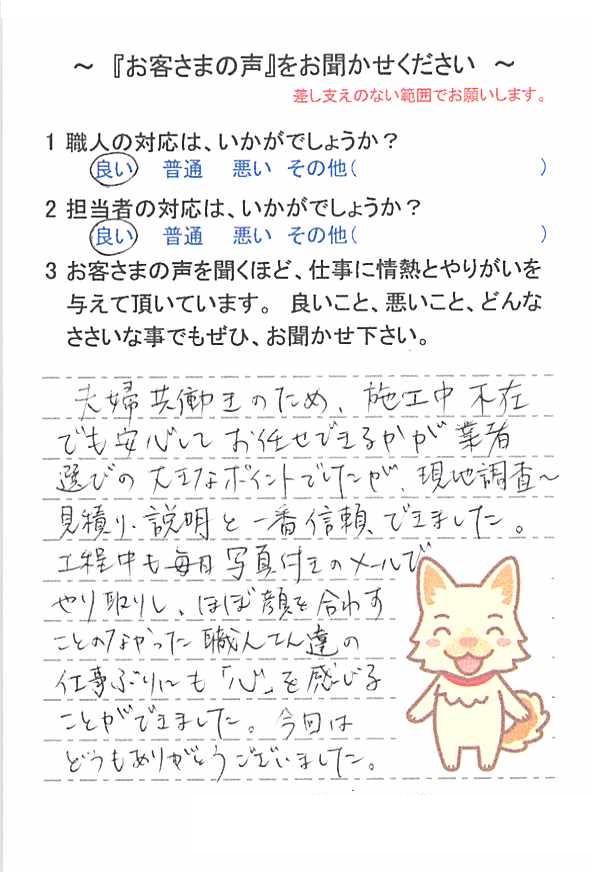 ～ 『お客さまの声』をお聞かせください ～
差し支えのない範囲でお願いします。
1 職人の対応は、いかがでしょうか？
良い 普通 悪い その他( )
2 担当者の対応は、いかがでしょうか？
良い 普通 悪い その他( )
3 お客さまの声を聞くほど、仕事に情熱とやりがいを
与えて頂いています。 良いこと、悪いこと、どんな
ささいな事でもぜひ、お聞かせ下さい。
夫婦共働きのため、施工中不在
でも安心してお任せできるかが業者
選びの大きなポイントでしたが、現地調査～
見積り、説明と一番信頼できました。
工程中も毎日写真付きのメールで
やり取りし、ほぼ顔を合わす
ことのなかった職人さん達の
仕事ぶりにも「心」を感じる
ことができました。今回は
どうもありがとうございました。